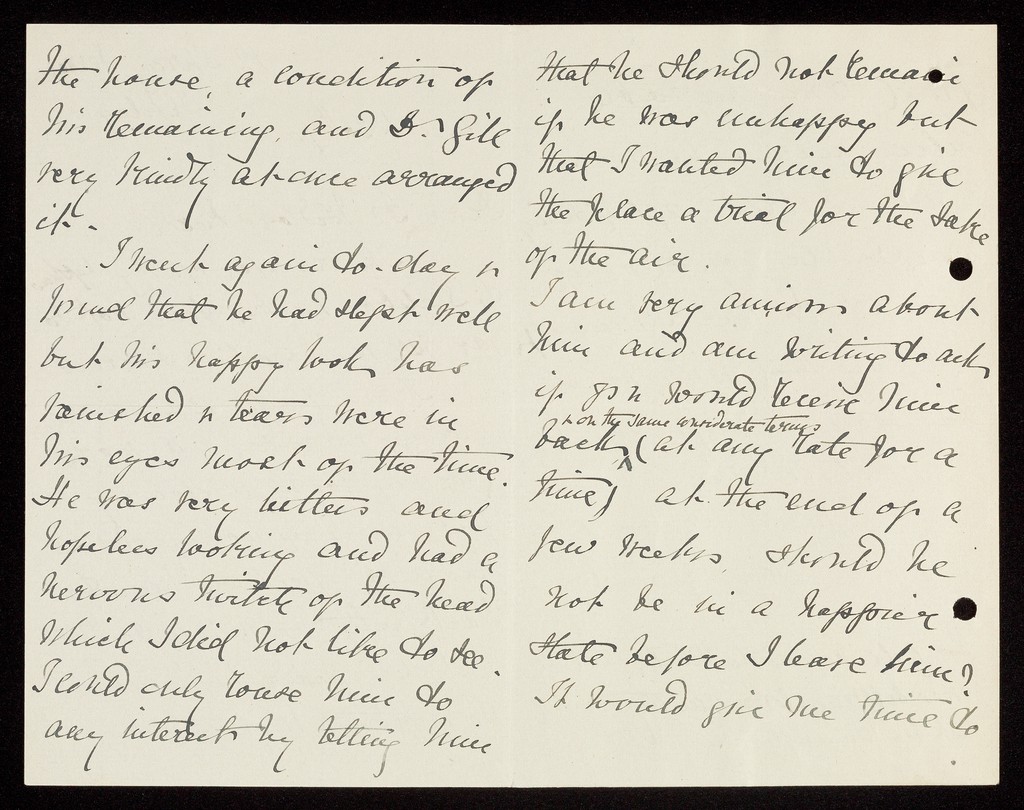 the house, a condition of
his remaining, and Dr. Gill
very kindly at once arranged
it.
I went again to-day &
found that he had slept well
but his happy look has
vanished & tears were in
his eyes most of the time.
He was very bitter and
hopeless looking and had a
nervous twitch of the head
which I did not like to see.
I could only rouse him to
any interest by telling him
that he should not remain
if he was unhappy but
that I wanted him to give
the place a trial for the sake
of the air.
I am very anxious about
him and am writing to ask
if you would receive him
& on the same considerate terms
back (at any rate for a
time) at the end of a
few weeks, should he
not be in a happier
state before I leave him?
It would give me time to